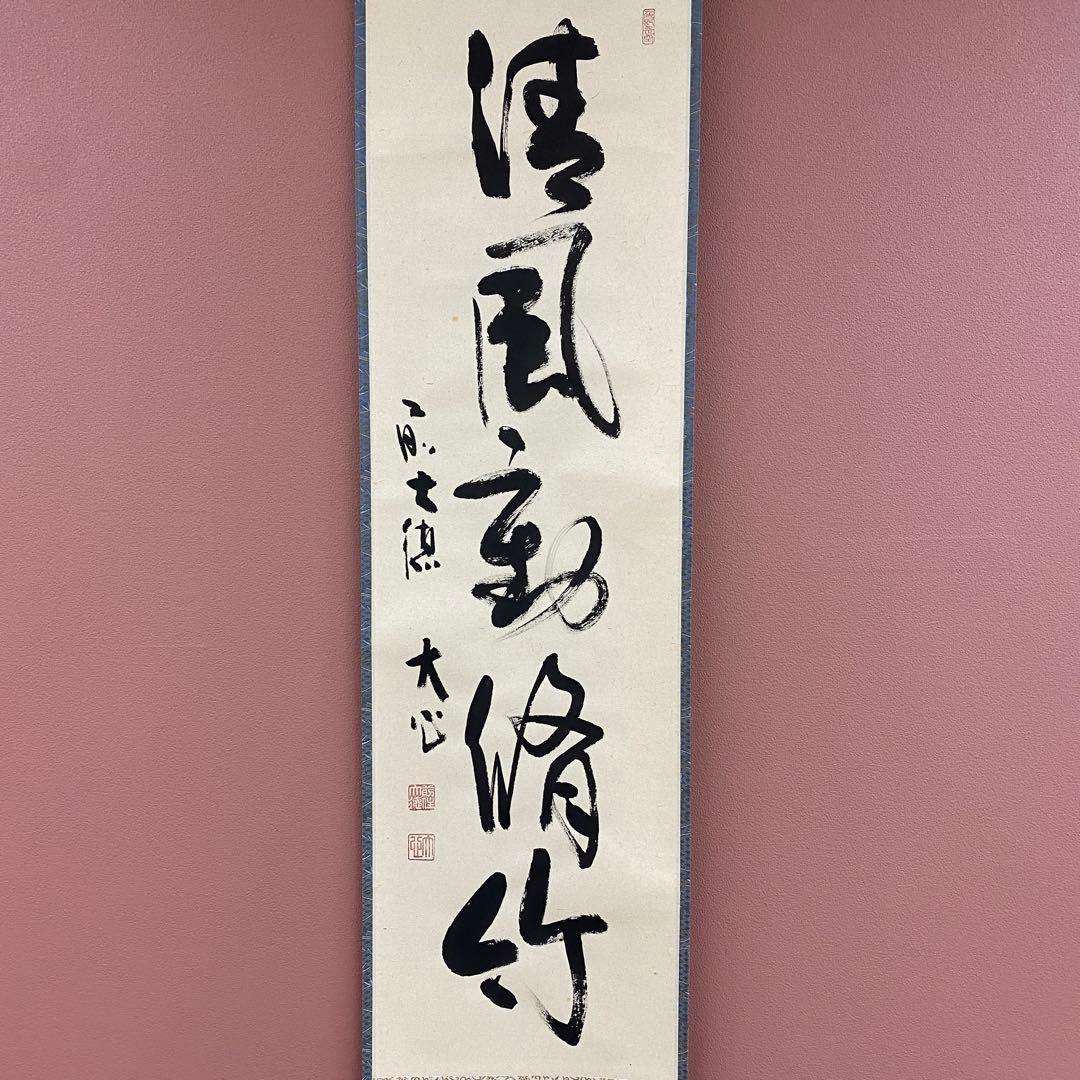 清風動脩竹
前大徳 大心